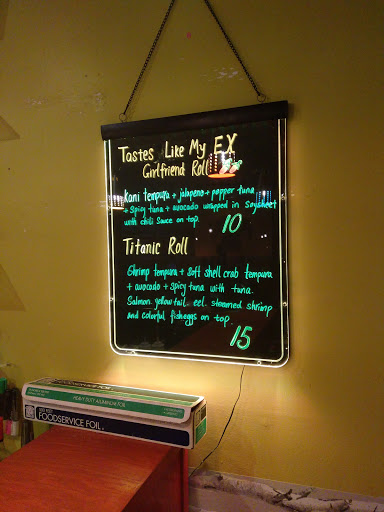 Tastes Like My EX
Girlfriend Roll
kani tempura + jalapeno + pepper tuna
+ Spicy tuna + avocado wrapped in Soysheet
with chili Sauce on top.
10
Titanic Roll
Shrimp tempura + soft shell crab tempura
+ avocado + spicy tuna with tuna.
Salmon. yellow tail. eel. steamed shrimp
and colorful fisheggs on top.
15
HEAVY DUTY ALUMINUM FOIL
FOODSERVICE FOIL